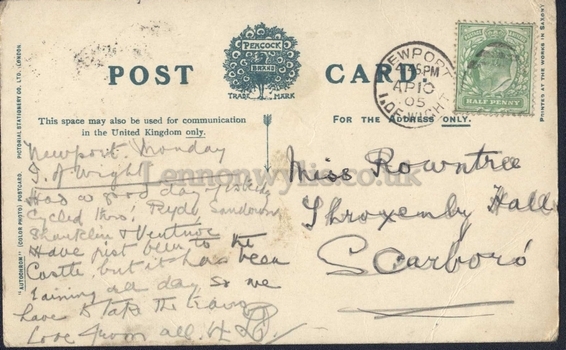 PEACOCK
BRAND
TRADE MARK
POST CARD.
This space may also be used for communication
in the United Kingdom only.
FOR THE ADDRESS ONLY.
"AUTOCHROM" (COLOR PHOTO) POSTCARD. PICTORIAL STATIONERY CO. LTD., LONDON.
PRINTED AT THE WORKS IN SAXONY
NEWPORT
PM
AP 10
05
I. OF WIGHT
HALF PENNY
Newport. Monday
I. of Wight
Had a good day yesterday
Cycled thro' Ryde, Sandown,
Shanklin & Ventnor
Have just been to the
Castle but it has been
raining all day so we
have to take the trains
Love from all.
Miss Rowntree
Throxenby Hall
Scarboro
Lennonwylie.co.uk